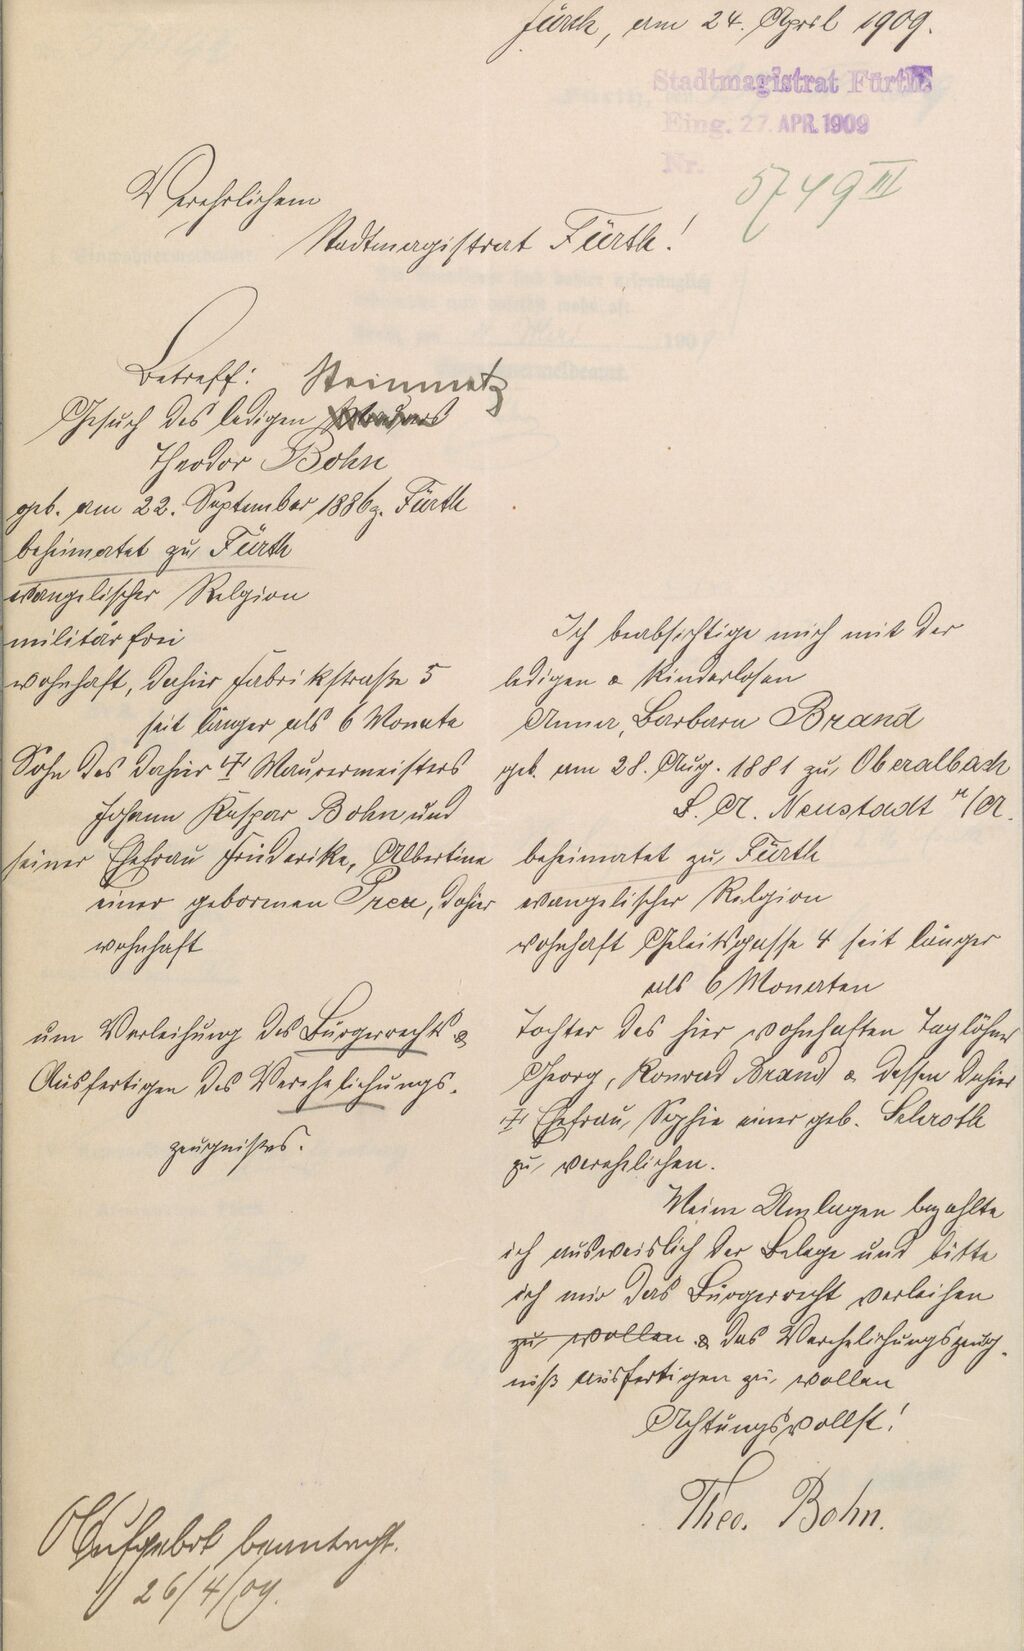 Fürth, am 24. April 1909.
Stadtmagistrat Fürth
Eing. 27. APR. 1909
Nr.
5749 III
Verehrlichem
Stadtmagistrat Fürth!
Betreff:
Steinmetz
Gesuch des ledigen
Theodor Bohn
geb. am 22. September 1886 z. Fürth
beheimatet zu Fürth
evangelischer Relgion
militärfrei
wohnhaft, dahier Fabrikstraße 5
seit länger als 6 Monate
Sohn des dahier † Maurermeisters
Johann Kaspar Bohn und
seiner Ehefrau Friederike, Albertine
einer gebornen Preu, dahier
wohnhaft
um Verleihung des Bürgerrechts &
Ausfertigen des Verehelichungs-
zeugnisses.
Ich beabsichtige mich mit der
ledigen & kinderlosen
Anna, Barbara Brand
geb. am 28. Aug. 1881 zu Oberalbach
B. A. Neustadt a/A.
beheimatet zu Fürth
evangelischer Relgion
wohnhaft Geleitsgasse 4 seit länger
als 6 Monaten
Tochter des hier wohnhaften Taglöhner
Georg, Konrad Brand & dessen dahier
† Ehefrau, Sophie einer geb. Schroth
zu verehelichen.
Meine Umlagen bezahlte
ich ausweislich der Belege und bitte
ich mir das Bürgerrecht verleihen
zu wollen & das Verehelichungszeug-
niß ausfertigen zu wollen
Achtungsvollst!
Theo. Bohn.
Aufgebot beantragt.
26/4/09.